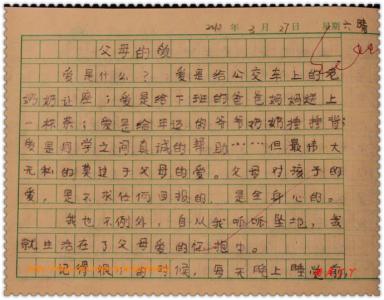 2012年3月27日 星期六 晴
父母的爱
爱是什么？爱是给公交车上的老
奶奶让座；爱是给下班的爸爸妈妈送上
一杯茶；爱是给年迈的爷爷奶奶捶捶背；
爱是同学之间真诚的帮助……但最伟大
无私的莫过于父母的爱。父母对孩子的
爱，是不求任何回报的，是全身心的。
我也不例外，自从我呱呱坠地，我
就生活在了父母爱的怀抱中。
记得很 的时候，每天晚上睡觉前